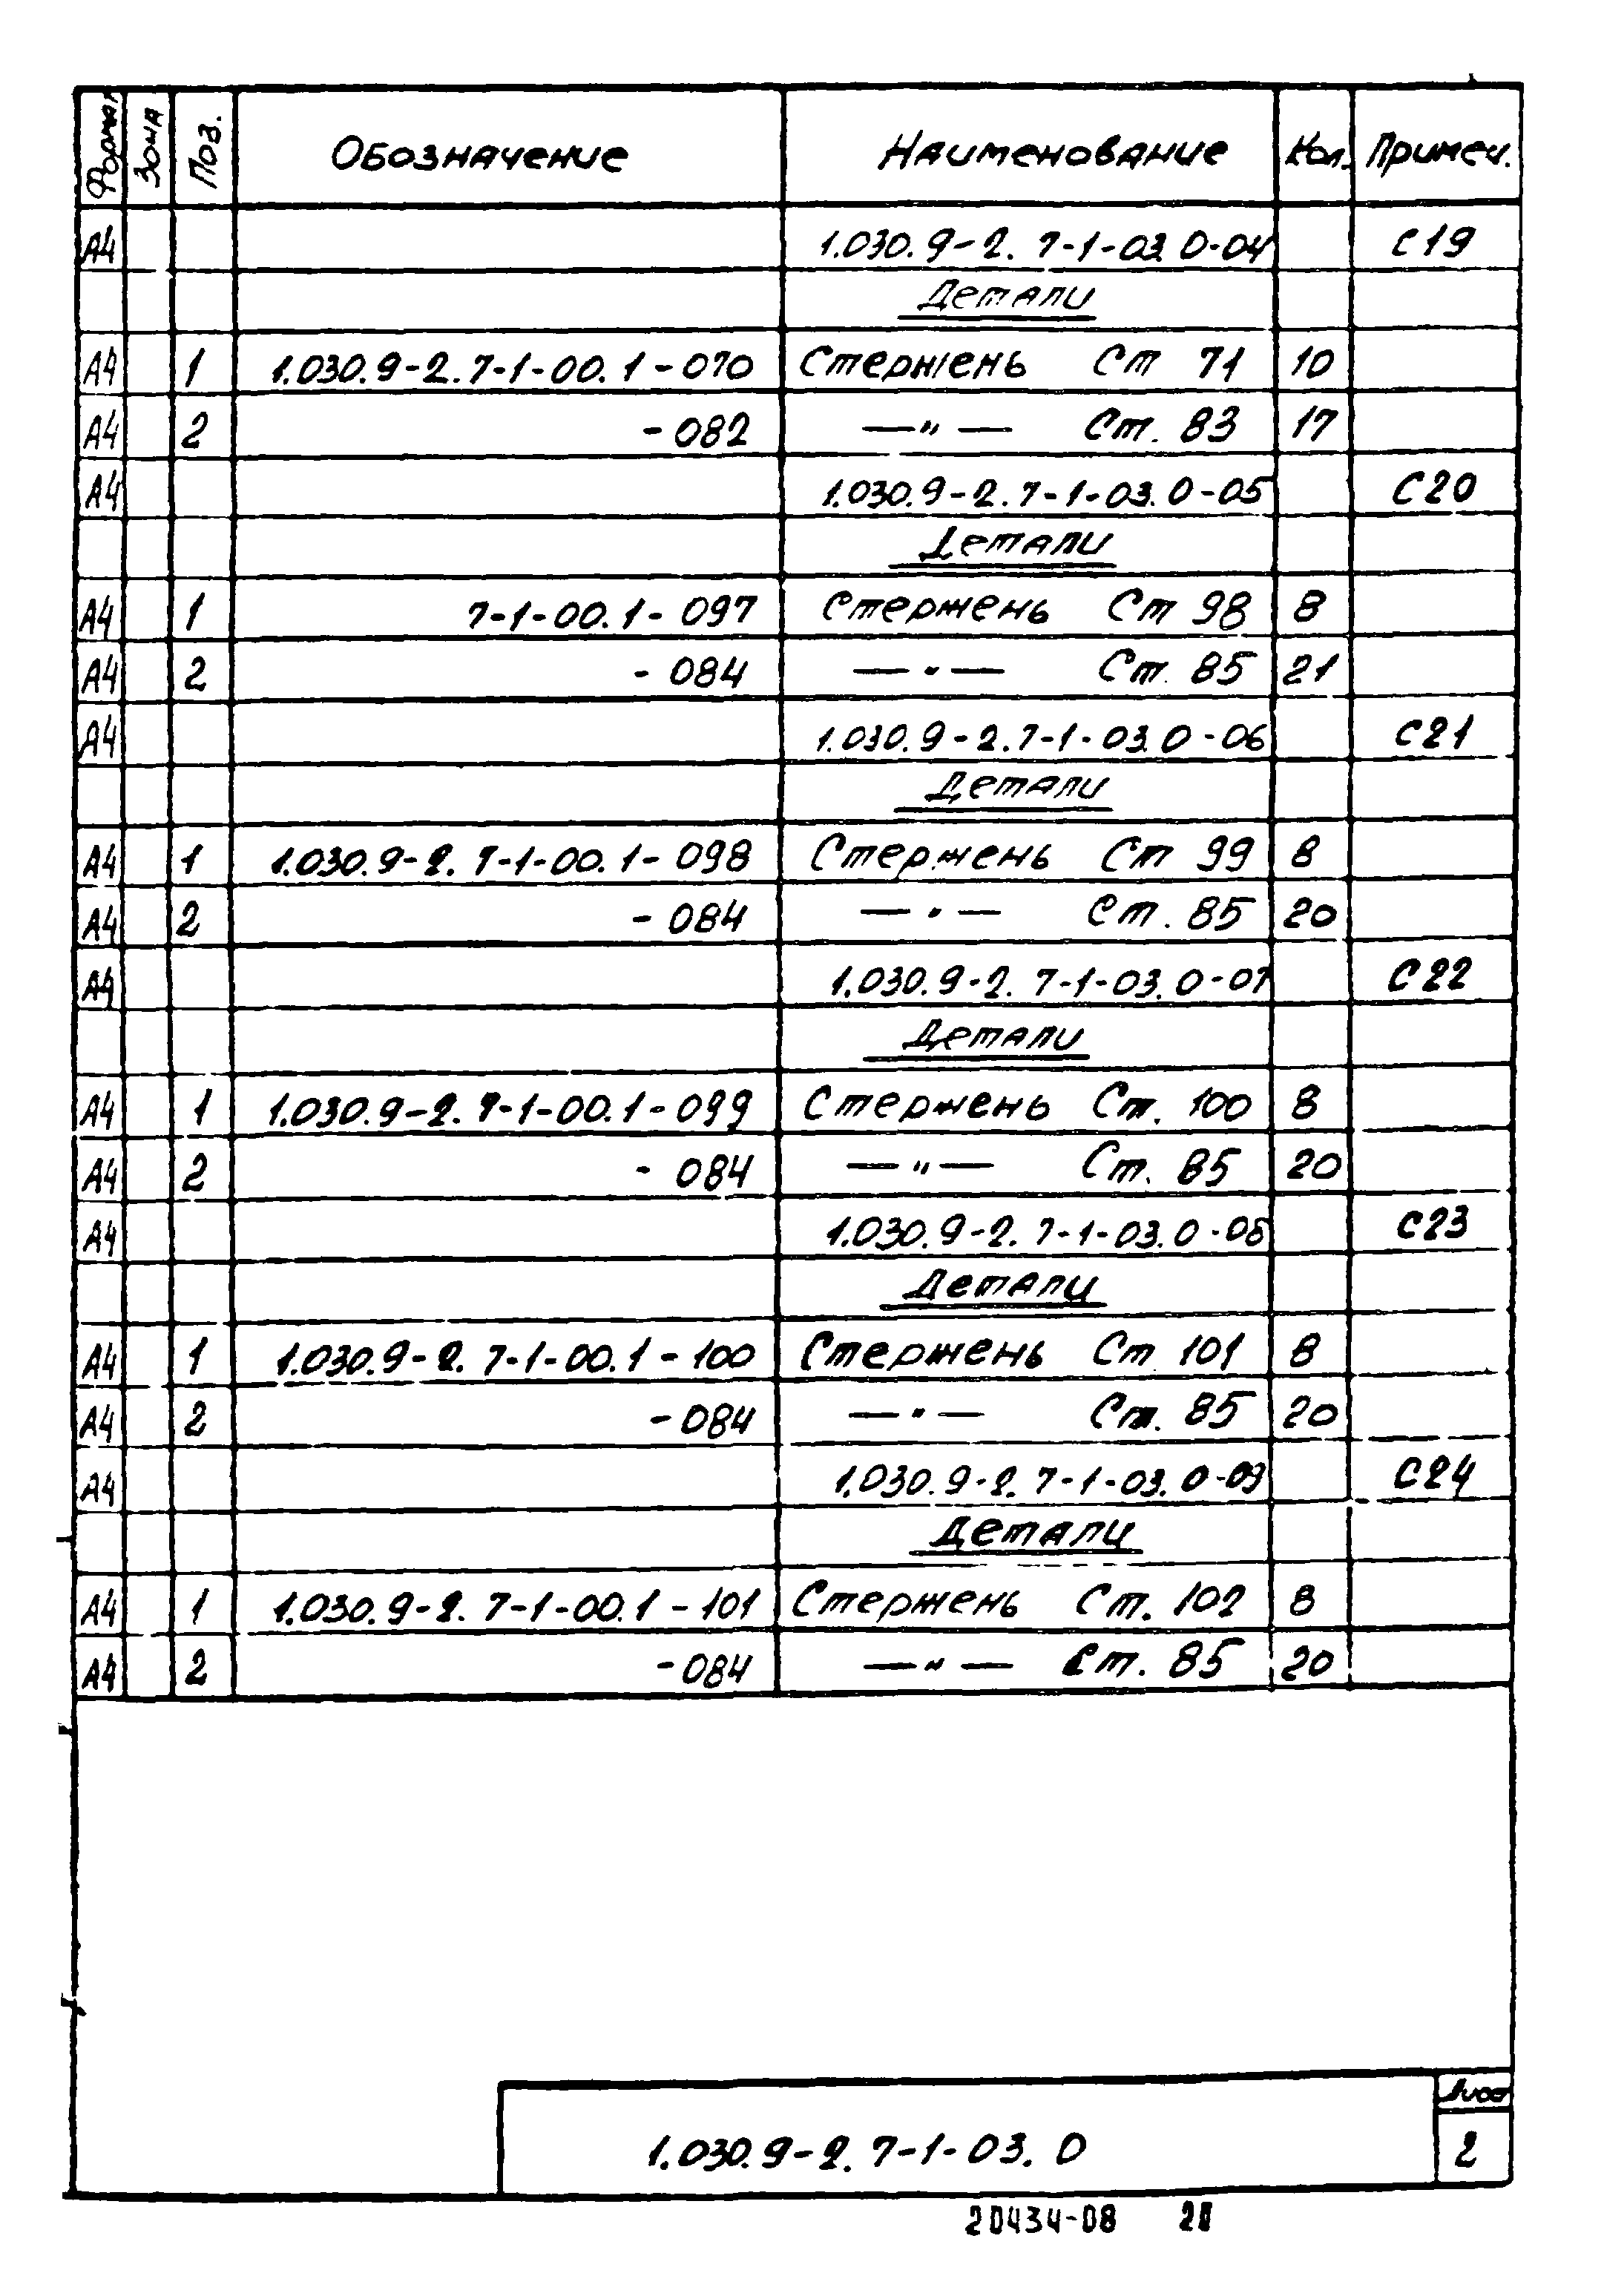 Формат Зона Поз. Обозначение Наименование Кол. Примеч.
А4 1.030.9-2.7-1-03.0-04 С19
Детали
А4 1 1.030.9-2.7-1-00.1-070 Стержень Ст 71 10
А4 2 -082 —"— Ст. 83 17
А4 1.030.9-2.7-1-03.0-05 С20
Детали
А4 1 7-1-00.1-097 Стержень Ст 98 8
А4 2 -084 —"— Ст. 85 21
А4 1.030.9-2.7-1-03.0-06 С21
Детали
А4 1 1.030.9-2.7-1-00.1-098 Стержень Ст 99 8
А4 2 -084 —"— Ст. 85 20
А4 1.030.9-2.7-1-03.0-07 С22
Детали
А4 1 1.030.9-2.7-1-00.1-099 Стержень Ст. 100 8
А4 2 -084 —"— Ст. 85 20
А4 1.030.9-2.7-1-03.0-08 С23
Детали
А4 1 1.030.9-2.7-1-00.1-100 Стержень Ст 101 8
А4 2 -084 —"— Ст. 85 20
А4 1.030.9-2.7-1-03.0-09 С24
Детали
А4 1 1.030.9-2.7-1-00.1-101 Стержень Ст. 102 8
А4 2 -084 —"— Ст. 85 20
Лист
1.030.9-2.7-1-03.0 2
20434-08